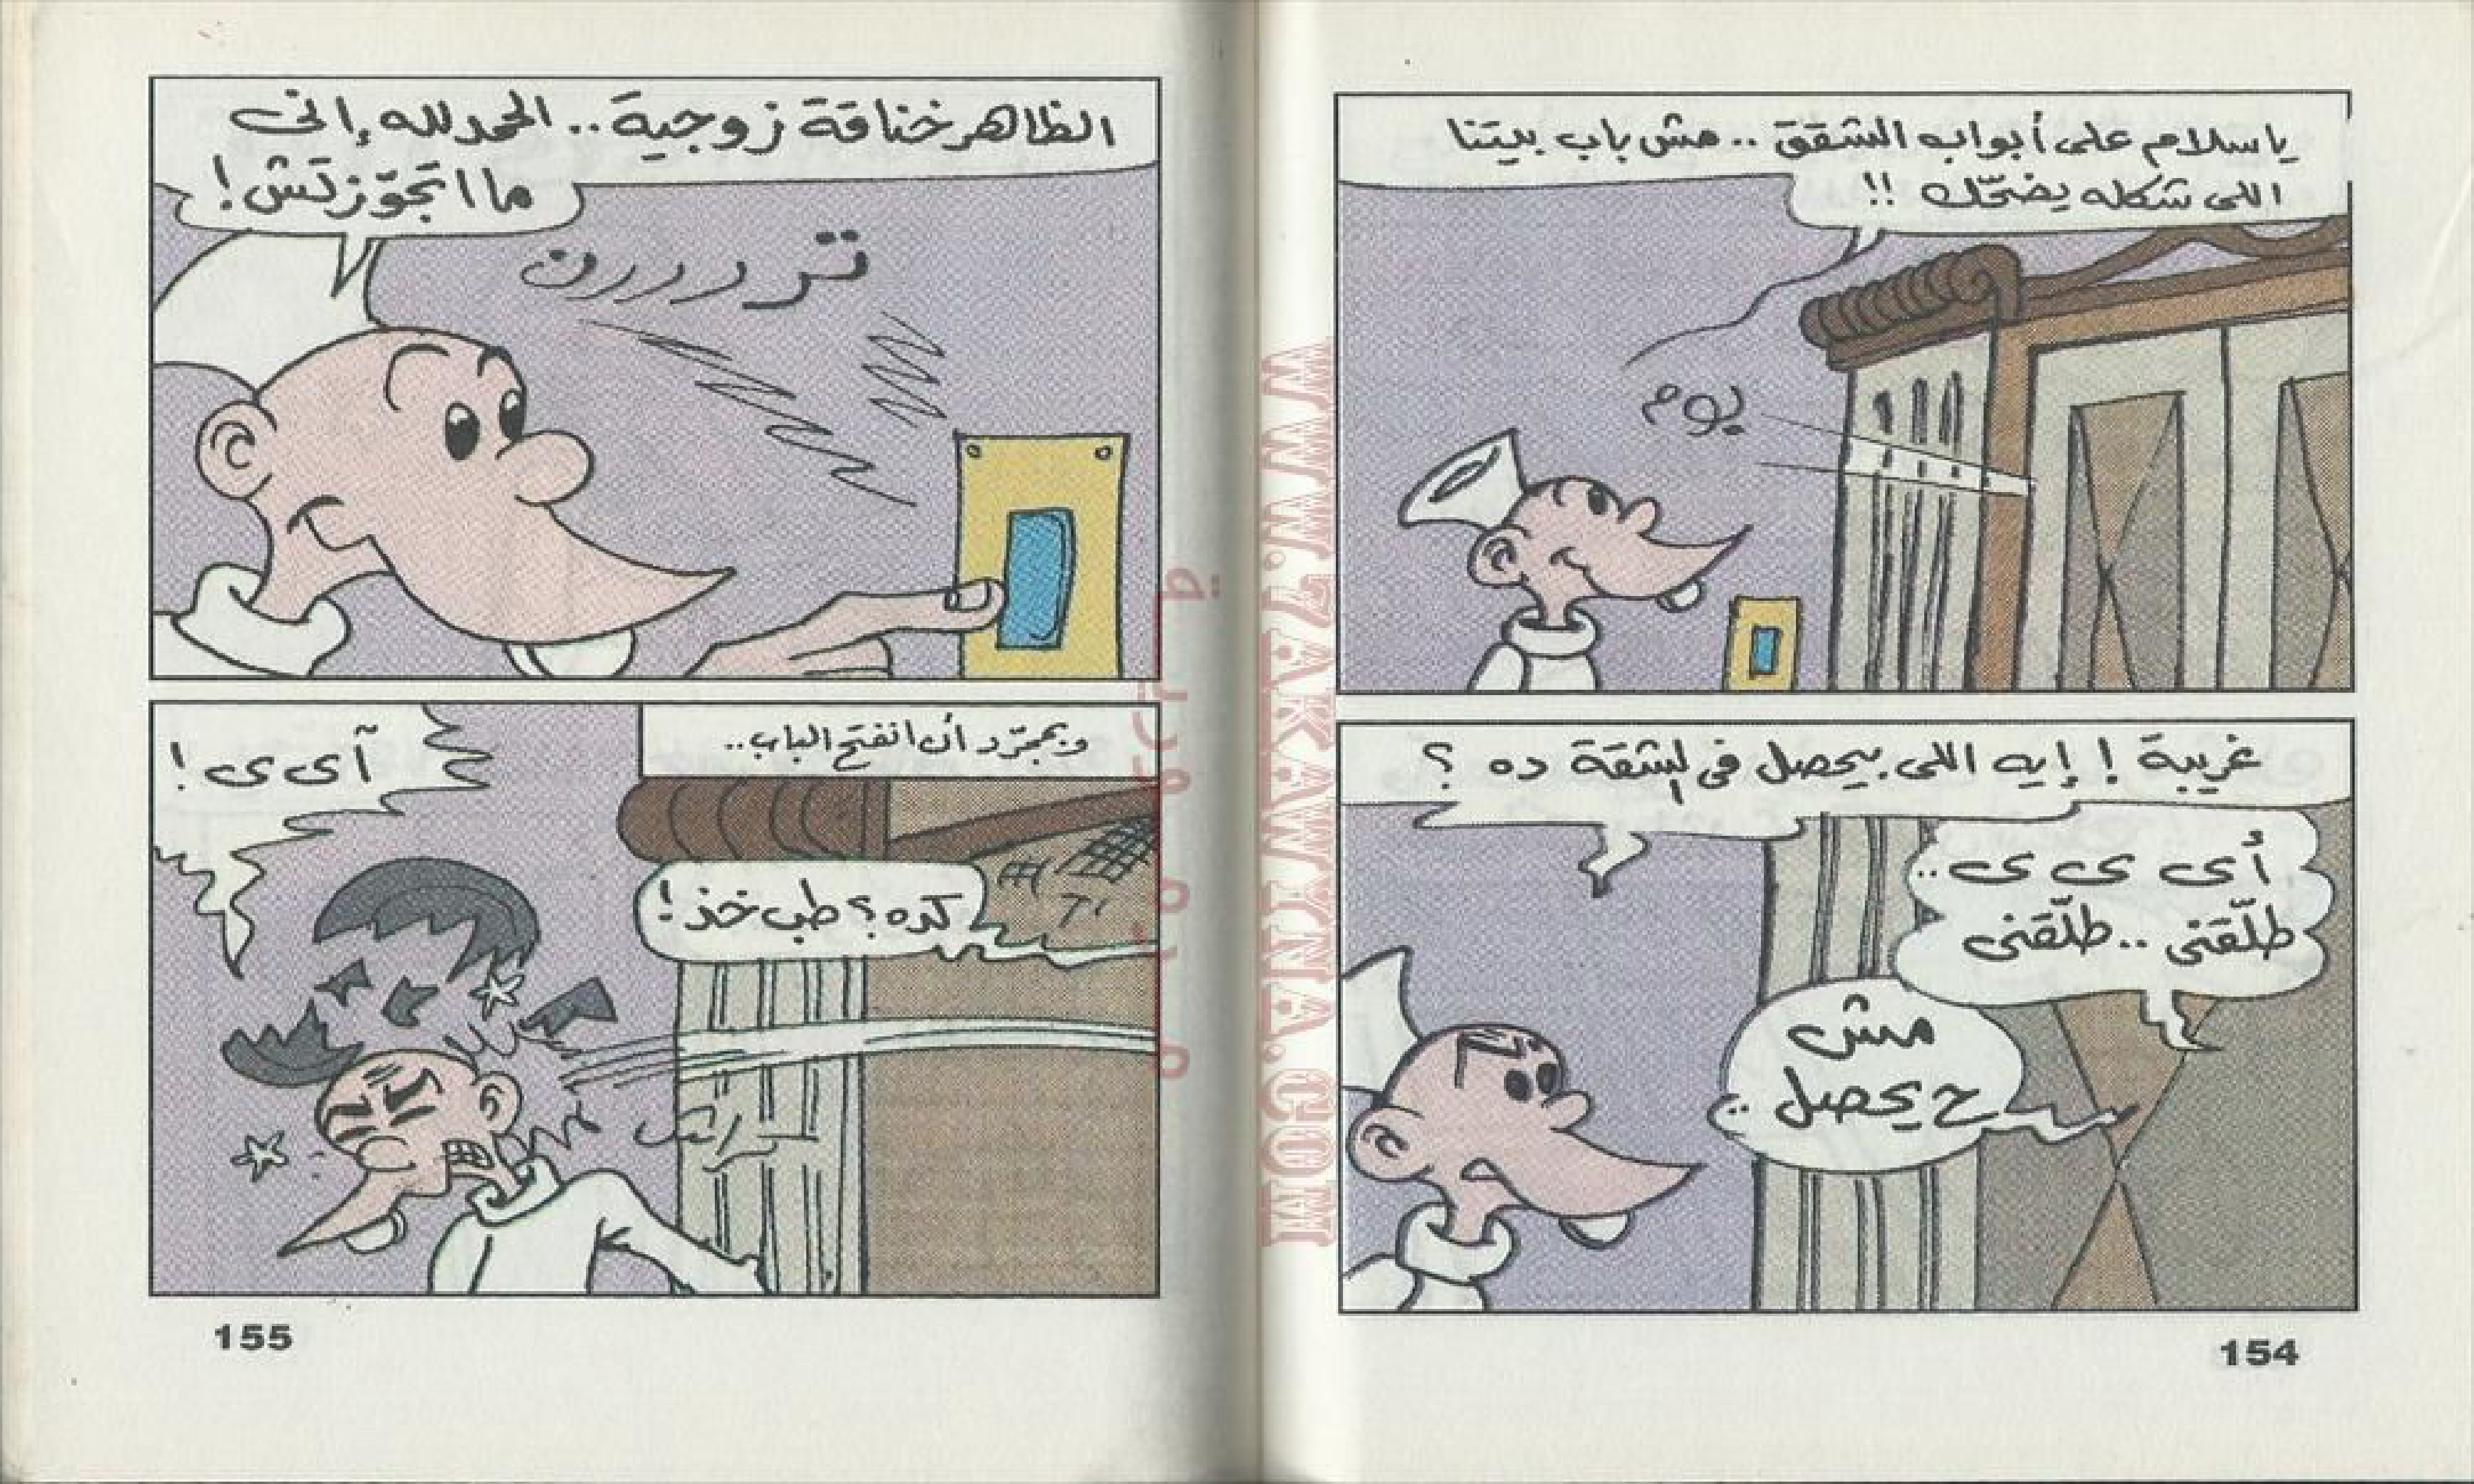 ياسلام على أبواب الشقق .. مش باب بيتنا
اللى شكله يضحّك !!
يوم
غريبة ! إيه اللى بيحصل فى الشقة ده ؟
أى ى ى ..
طلّقنى .. طلّقنى
مش
ح يحصل ..
154
الظاهر خناقة زوجية .. الحمد لله إنى
ما اتجوّزتش !
تررررن
وبمجرّد أن انفتح الباب ..
آى ى !
كده ؟ طب خذ !
155
WWW.7AKAWYINA.COM